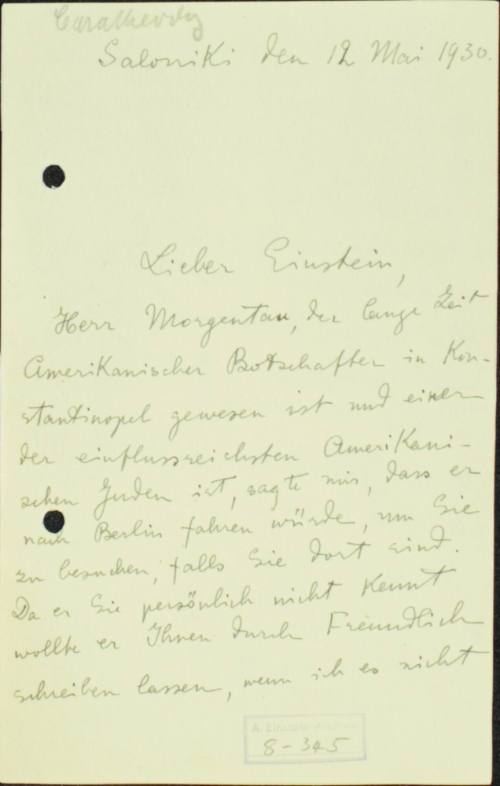 Caratheodory
Saloniki den 12 Mai 1930.
Lieber Einstein,
Herr Morgentau, der lange Zeit
Amerikanischer Botschafter in Kon-
stantinopel gewesen ist und einer
der einflussreichsten Amerikani-
schen Juden ist, sagte mir, dass er
nach Berlin fahren würde, um Sie
zu besuchen, falls Sie dort sind.
Da er Sie persönlich nicht kennt
wollte er Ihnen durch Freundlich
schreiben lassen, wenn ich es nicht
A. Einstein Archive
8-345